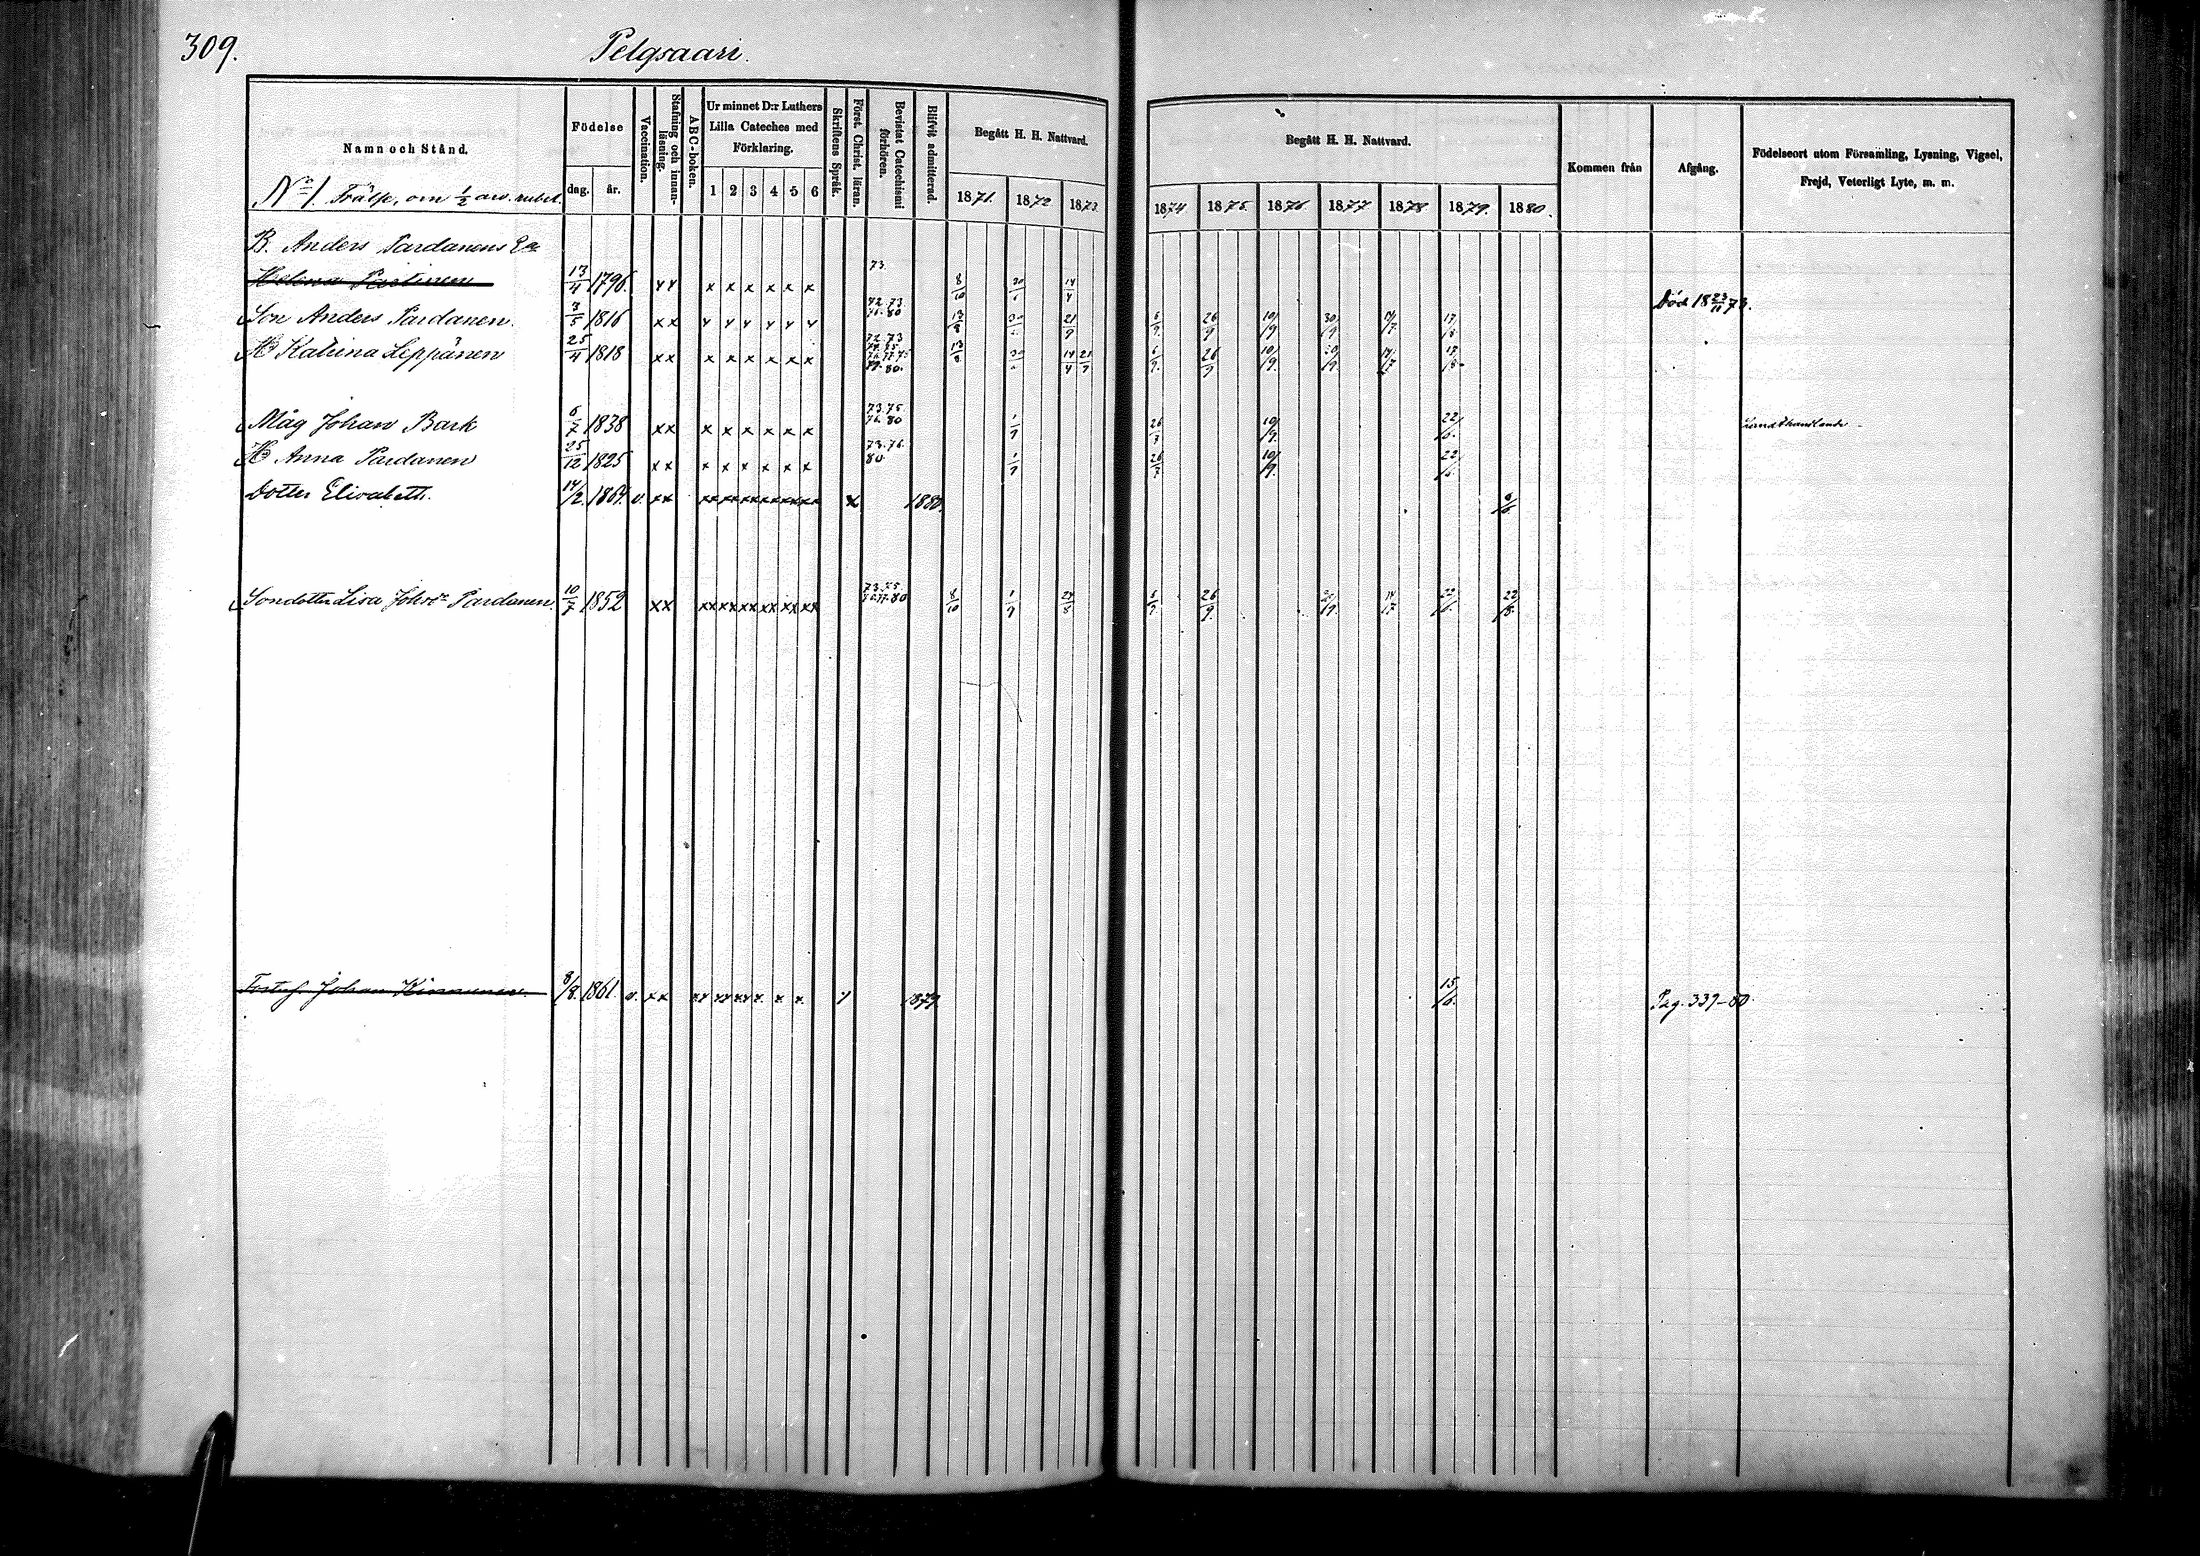 309.
Pelgsaari.
Namn och Stånd.
Födelse
dag.
år.
Vaccination.
Stafning och innan-läsning.
ABC-boken.
Ur minnet D:r Luthers
Lilla Cateches med
Förklaring.
1 2 3 4 5 6
Skriftens Språk.
Först. Christ. läran.
Bevistat Catechismi förhören.
Blifvit admitterad.
Begått H. H. Nattvard.
1871. 1872 1873.
Begått H. H. Nattvard.
1874 1875. 1876. 1877. 1878. 1879. 1880.
Kommen från
Afgång.
Födelseort utom Församling, Lysning, Vigsel,
Frejd, Veterligt Lyte, m. m.
No 1. Frälse, om 1/2
B. Anders Pardanens
Helena 13/4 1796. x x x x x x x x 73. 8/10 14/4 Död 18 23/11 73.
Son Anders Pardanen. 3/5 1816 x x x x x x x x 72. 73 76. 80 13/8 30 21/9 6/9. 26/9 10/9 30/9 14/7 17/8.
H Katrina Leppänen 25/4 1818 x x x x x x x x 72. 73 80. 13/8 30 14/4 21/9 6/9. 26/9 10/9. 30/9. 14/7 17/8.
Måg Johan Bark 6/7 1838 x x x x x x x x 73. 75. 76. 80 1/9 26/7 10/9. 22/6.
H Anna Pardanen 25/12 1825 x x x x x x x x 73. 76. 80. 1/9 26/7 10/9. 22/6.
Dotter Elisabeth. 14/2. 1864. v. xx xx xx xx xx xx xx x 1880. 6/6.
Sondotter Lisa Johsdr Pardanen. 10/7 1852 xx xx xx xx xx xx xx 73. 75. 76. 77. 80 8/10 1/9 24/8 6/9. 26/9. 30/9. 14/7 22/6. 22/8.
Johan Kinnunen. 8/8. 1861. v. xx xx xx xx x x x 1879. 15/6. Pag. 339-80.